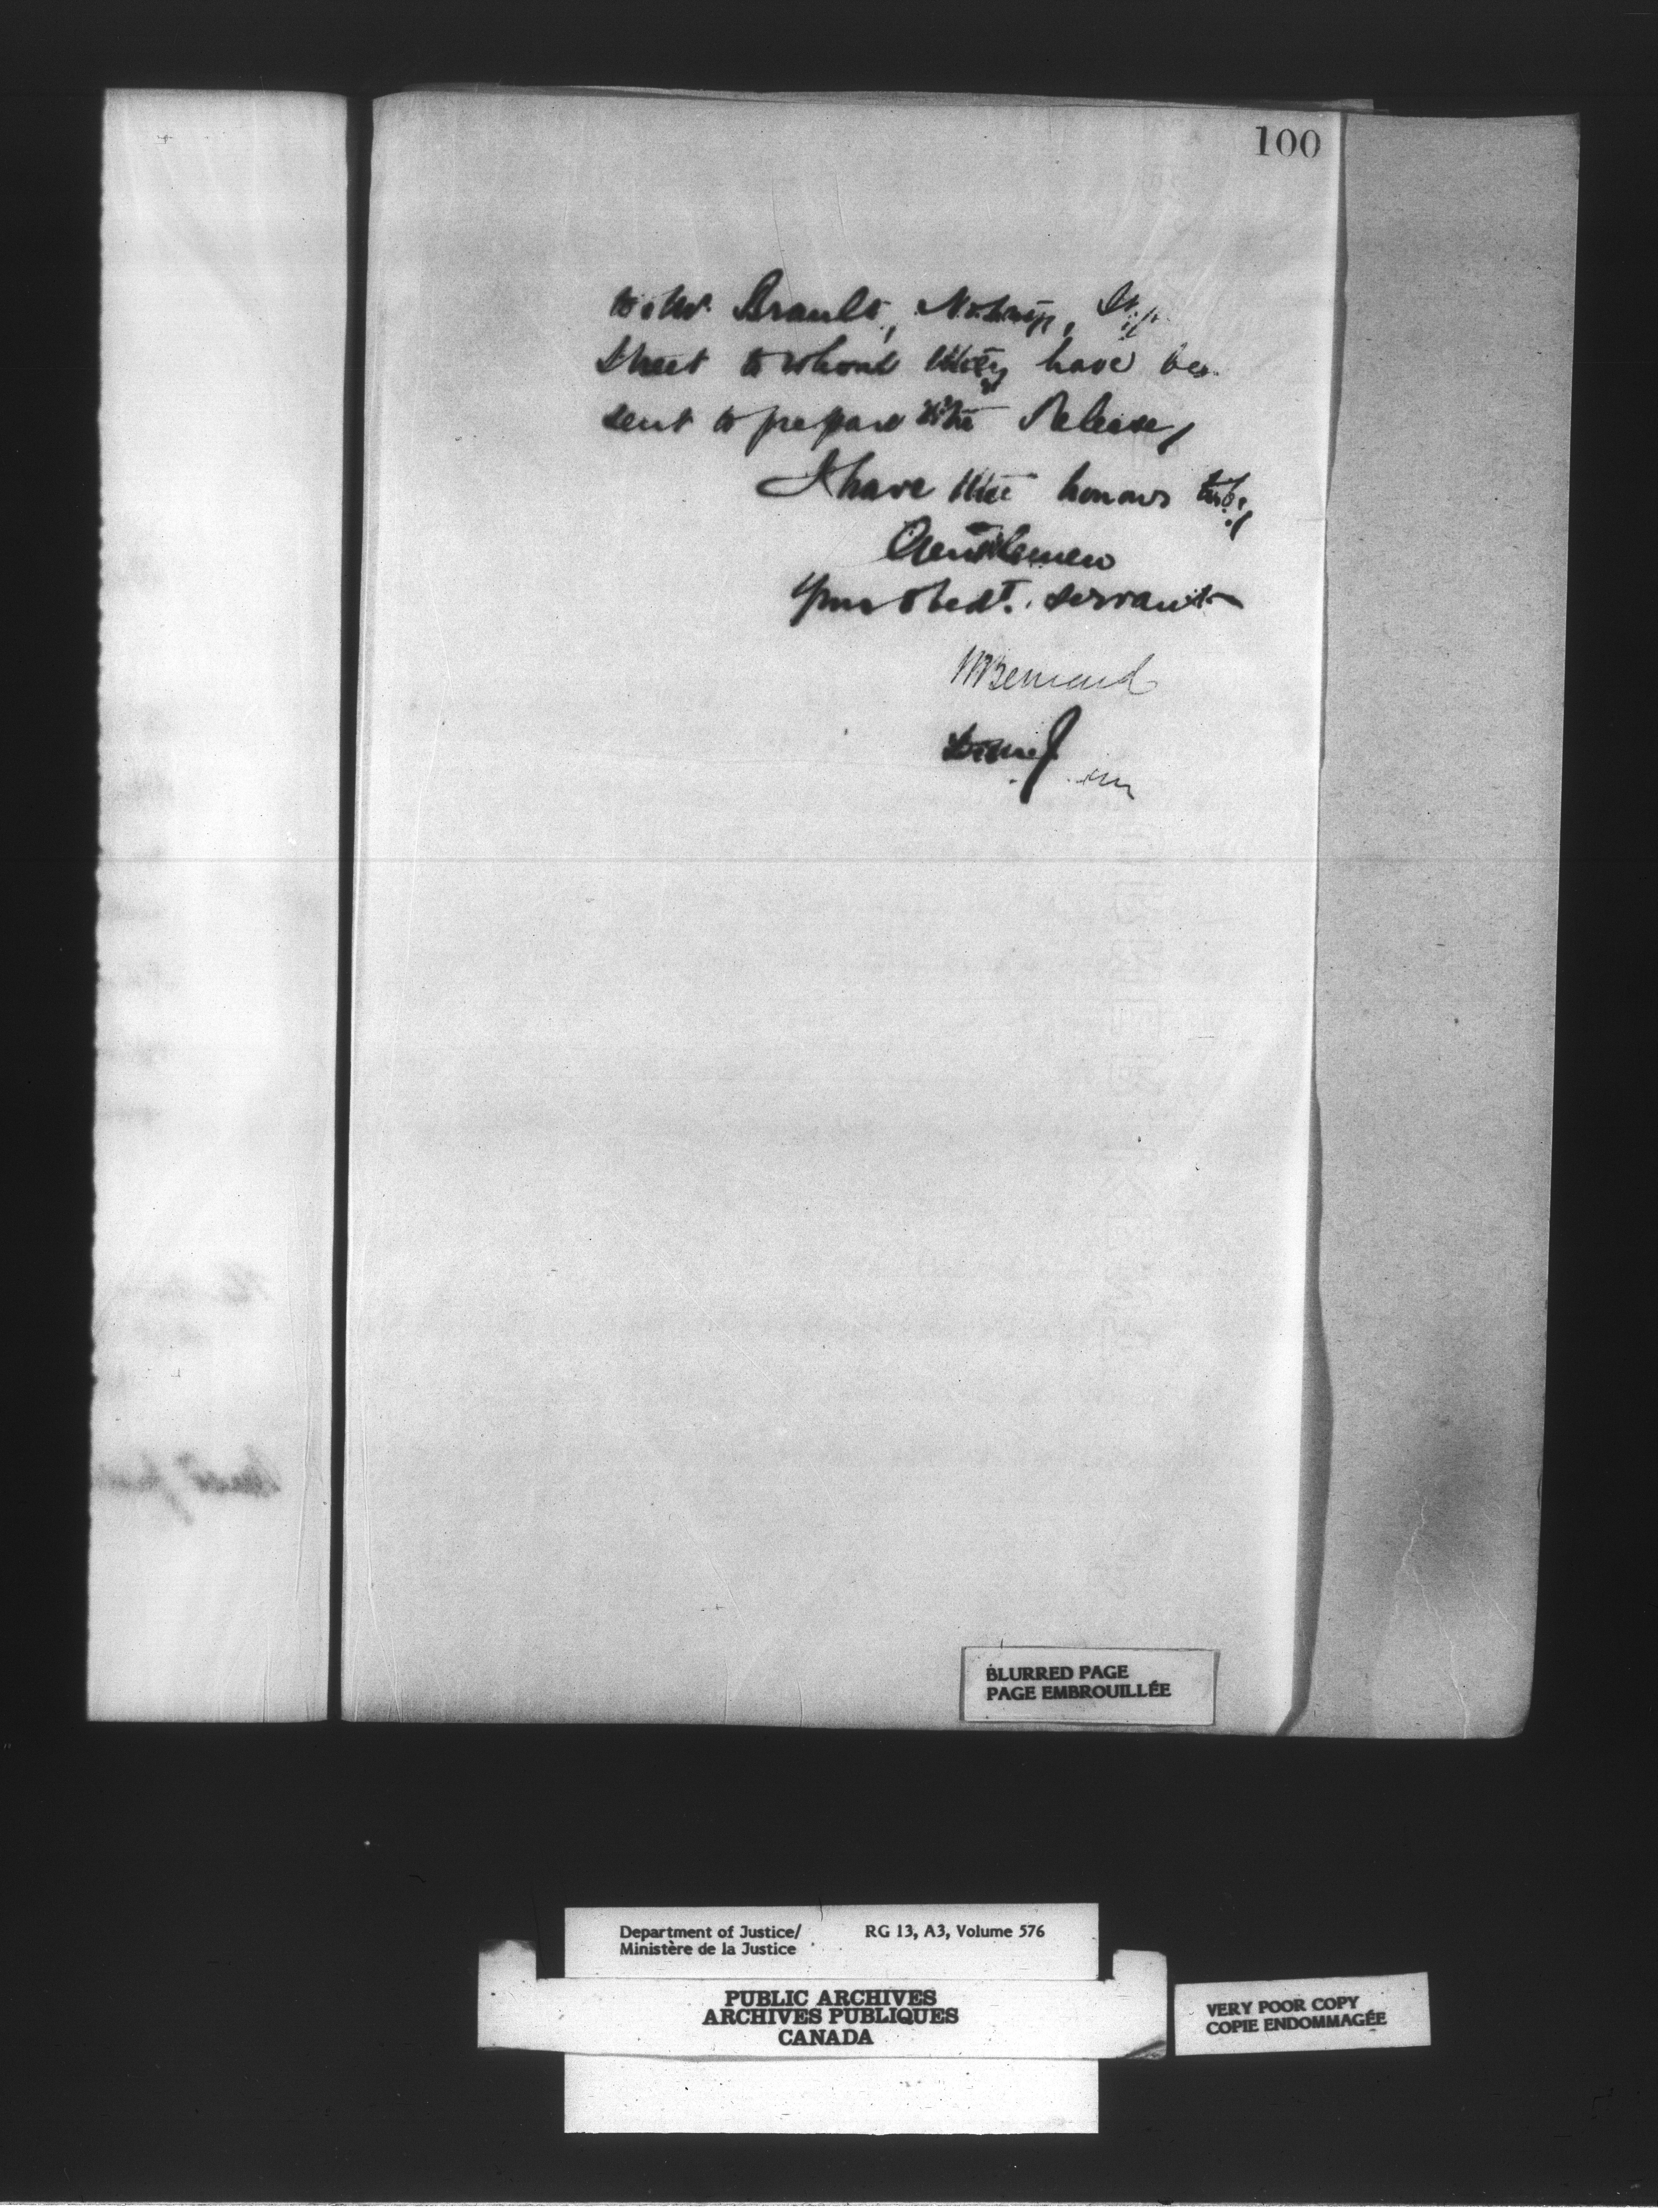 100
to Mr. Brault, Notary,
Street to whom they have
sent to prepare the Release,
I have the honour to be,
Gentlemen
Your obedt. servant
Bernard
BLURRED PAGE
PAGE EMBROUILLÉE
Department of Justice/ RG 13, A3, Volume 576
Ministère de la Justice
PUBLIC ARCHIVES
ARCHIVES PUBLIQUES
CANADA
VERY POOR COPY
COPIE ENDOMMAGÉE